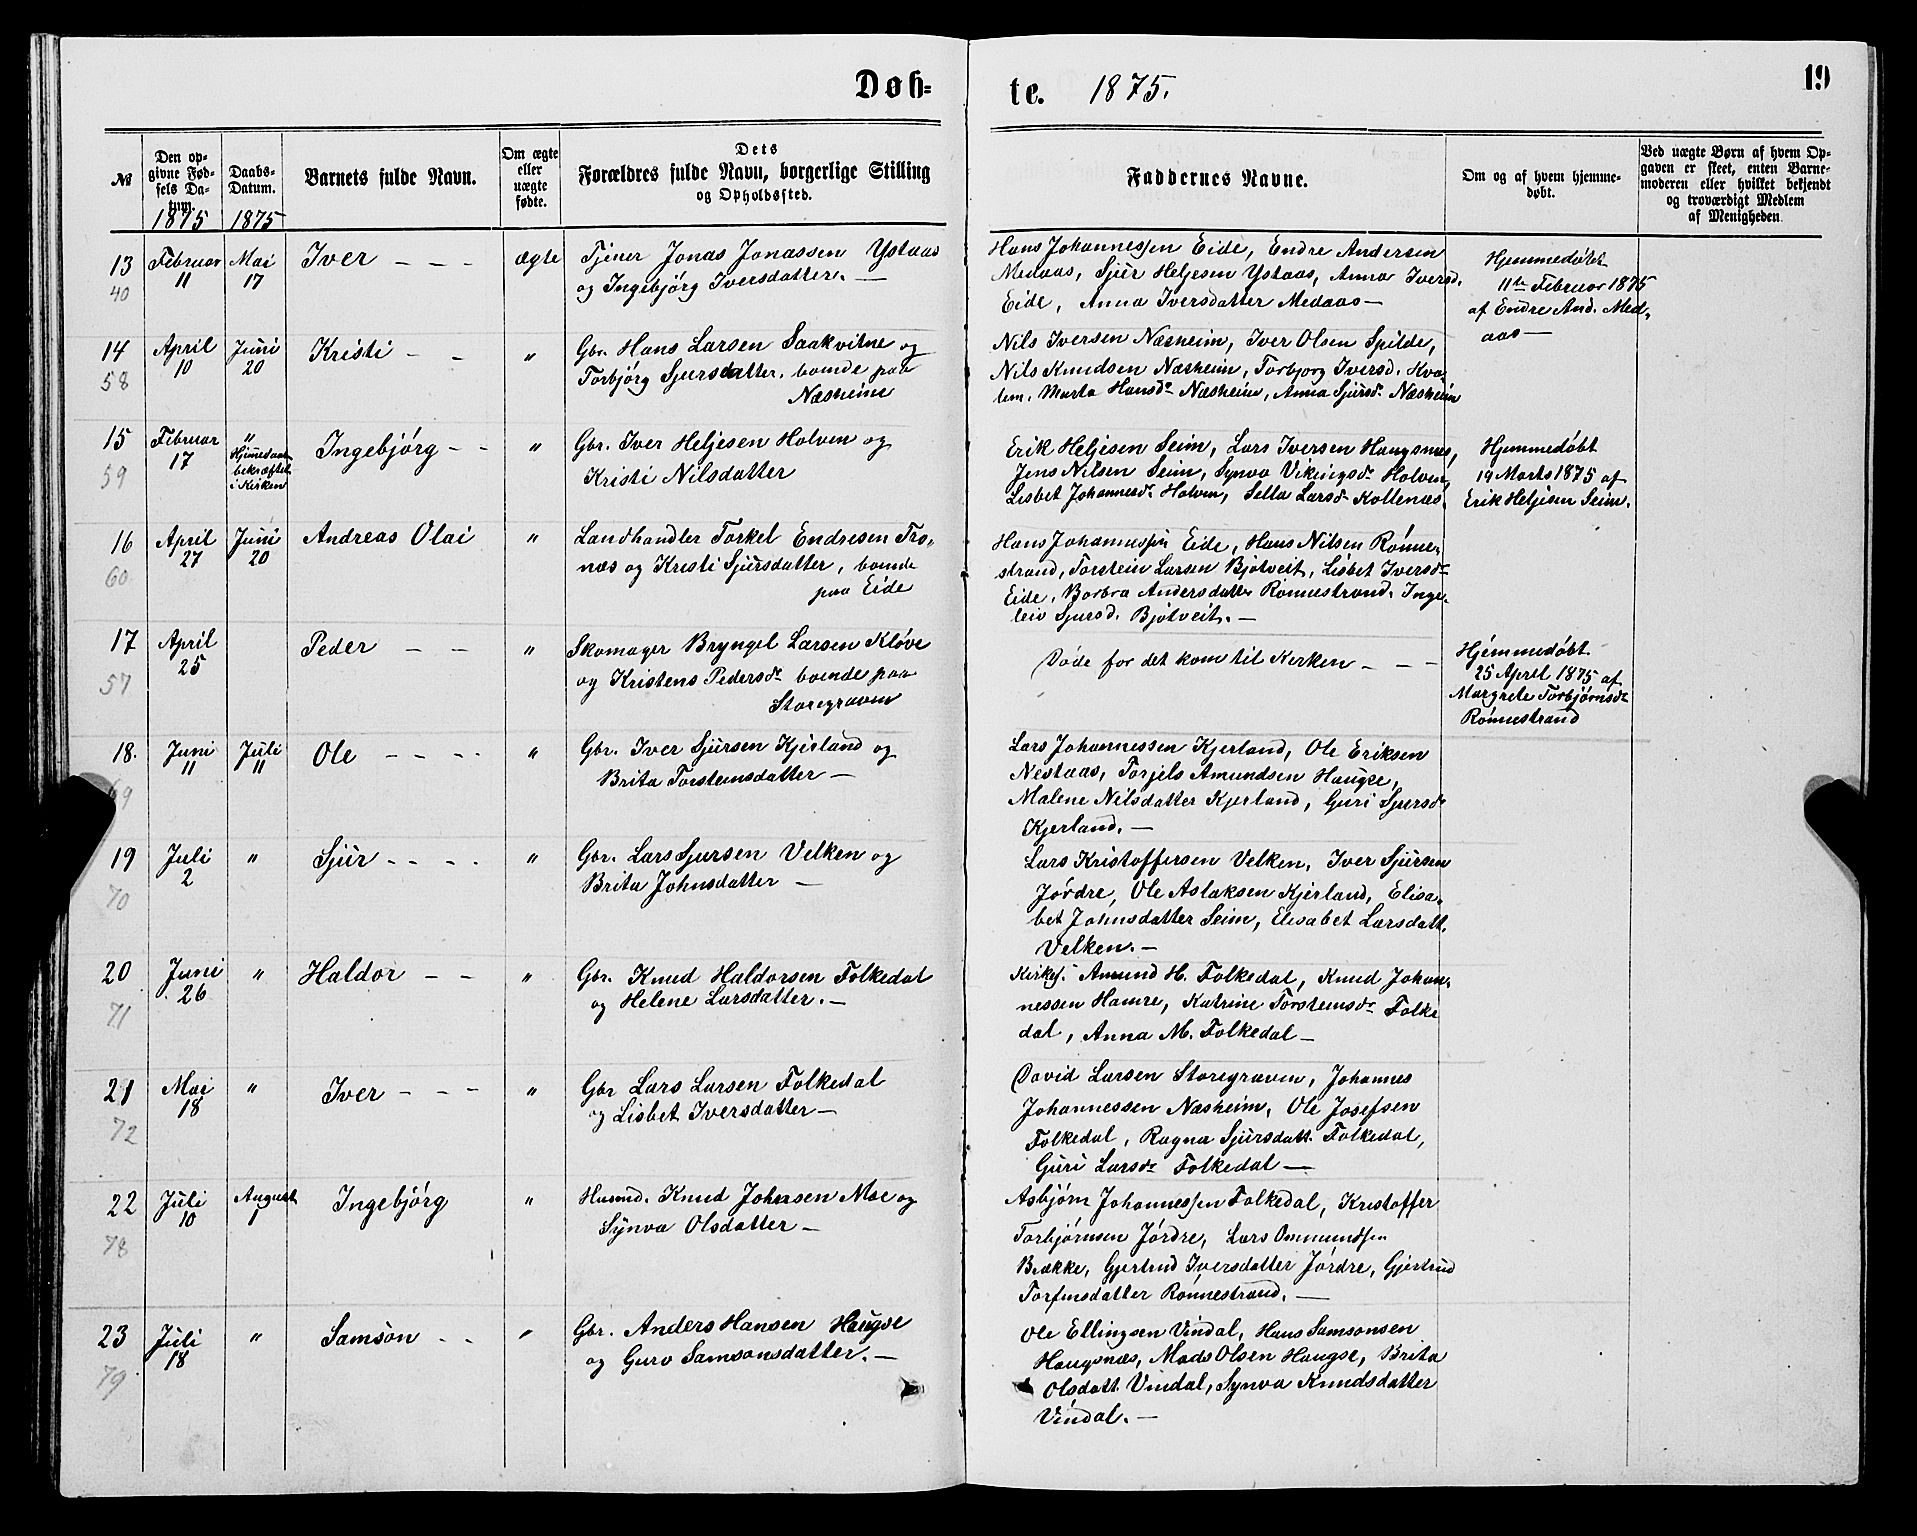 Døb= te. 1875. 19
№ Den op-givne Fød-sels Da-tum. 1875 Daabs-Datum. 1875 Barnets fulde Navn. Om ægte eller uægte fødte. Dets Forældres fulde Navn, borgerlige Stilling og Opholdssted. Faddernes Navne. Om og af hvem hjemme-døbt. Ved uægte Børn af hvem Op-gaven er skeet, enten Barne-moderen eller hvilket bekjendt og troværdigt Medlem af Menigheden.
13 Februar Mai Iver — — — ægte Tjener Jonas Jonassen Ystaas
40 11 17 og Ingebjörg Iversdatter. —
Hans Johannessen Eide, Endre Andersen
Medaas, Sjur Heljesen Ystaas, Anna Iversd.
Eide, Anna Iversdatter Medaas —
Hjemmedöbt
11te Februar 1875
af Endre And. Med-
aas —
14 April Juni Kristi - - " Gbr. Hans Larsen Saakvitne og
58 10 20 Torbjörg Sjursdatter, boende paa
Næsheim
Nils Iversen Næsheim, Iver Olsen Spilde,
Nils Knudsen Næsheim, Torbjorg Iversd. Kva-
lem. Marta Hansdr Næsheim, Anna Sjursdr Næsheim
15 Februar " Ingebjörg - - " Gbr. Iver Heljesen Holven og
59 17 Hjemedaab
bekræftet
i Kirken
Kristi Nilsdatter
Erik Heljesen Seim, Lars Iversen Haugsnes,
Jens Nilsen Seim, Synva Vikingsdr Holven,
Lisbet Johannesdr Holven, Sella Larsdr Kollenæs.
Hjemmedöbt
19 Marts 1875 af
Erik Heljesen Seim.
16 April Juni Andreas Olai " Landhandler Torkel Endresen Tro-
60 27 20 næs og Kristi Sjursdatter, boende
paa Eide
Hans Johannessen Eide, Hans Nilsen Rönne-
strand, Torstein Larsen Bjotveit, Lisbet Iversdr
Eide, Borbra Andersdatter Rönnestrand. Inge-
leiv Sjursd. Bjotveit. —
17 April Peder — — " Skomager Bryngel Larsen Klöve
57 25 og Kristens Pedersdr boende paa
Storegraven
Döde for det kom til Kirken — — —
Hjemmedöbt
25 April 1875 af
Margrete Torbjörnsdr
Rönnestrand
18. Juni Juli Ole - - - - " Gbr. Iver Sjursen Kjerland og
69 11 11 Brita Torsteinsdatter —
Lars Johannessen Kjerland, Ole Eriksen
Nestaas, Torjels Amundsen Haugse,
Malene Nilsdatter Kjerland, Guri Sjursdr
Kjerland. —
19 Juli " Sjur - - - - " Gbr. Lars Sjursen Velken og
70 2 Brita Johnsdatter —
Lars Kristoffersen Velken, Iver Sjursen
Jördre, Ole Aslaksen Kjerland, Elisa-
bet Johnsdatter Seim, Elisabet Larsdatt.
Velken. —
20 Juni " Haldor — — " Gbr. Knud Haldorsen Folkedal
71 26 og Helene Larsdatter. —
Kirkes. Amund H. Folkedal, Knud Johan-
nessen Hamre, Katrine Torsteinsdr Folke
dal, Anna M. Folkedal —
21 Mai " Iver - - - " Gbr Lars Larsen Folkedal
72 18 og Lisbet Iversdatter —
David Larsen Storegraven, Johannes
Johannessen Næsheim, Ole Josefsen
Folkedal, Ragna Sjursdatt. Folkedal,
Guri Larsdr Folkedal —
22 Juli August Ingebjörg " Husmd. Knud Johnsen Moe og
78 10 1 Synva Olsdatter —
Asbjörn Johannessen Folkedal, Kristoffer
Torbjörnsen Jördre, Lars Ommundsen
Brække, Gjertrud Iversdatter Jördre, Gjertrud
Torfinsdatter Rönnestrand. —
23 Juli " Samson - - " Gbr. Anders Hansen Haugse
79 18 og Guro Samsonsdatter. —
Ole Ellingsen Vindal, Hans Samsonsen
Haugsnæs, Mads Olsen Haugse, Brita
Olsdatt. Vindal, Synva Knudsdatter
Vindal. —